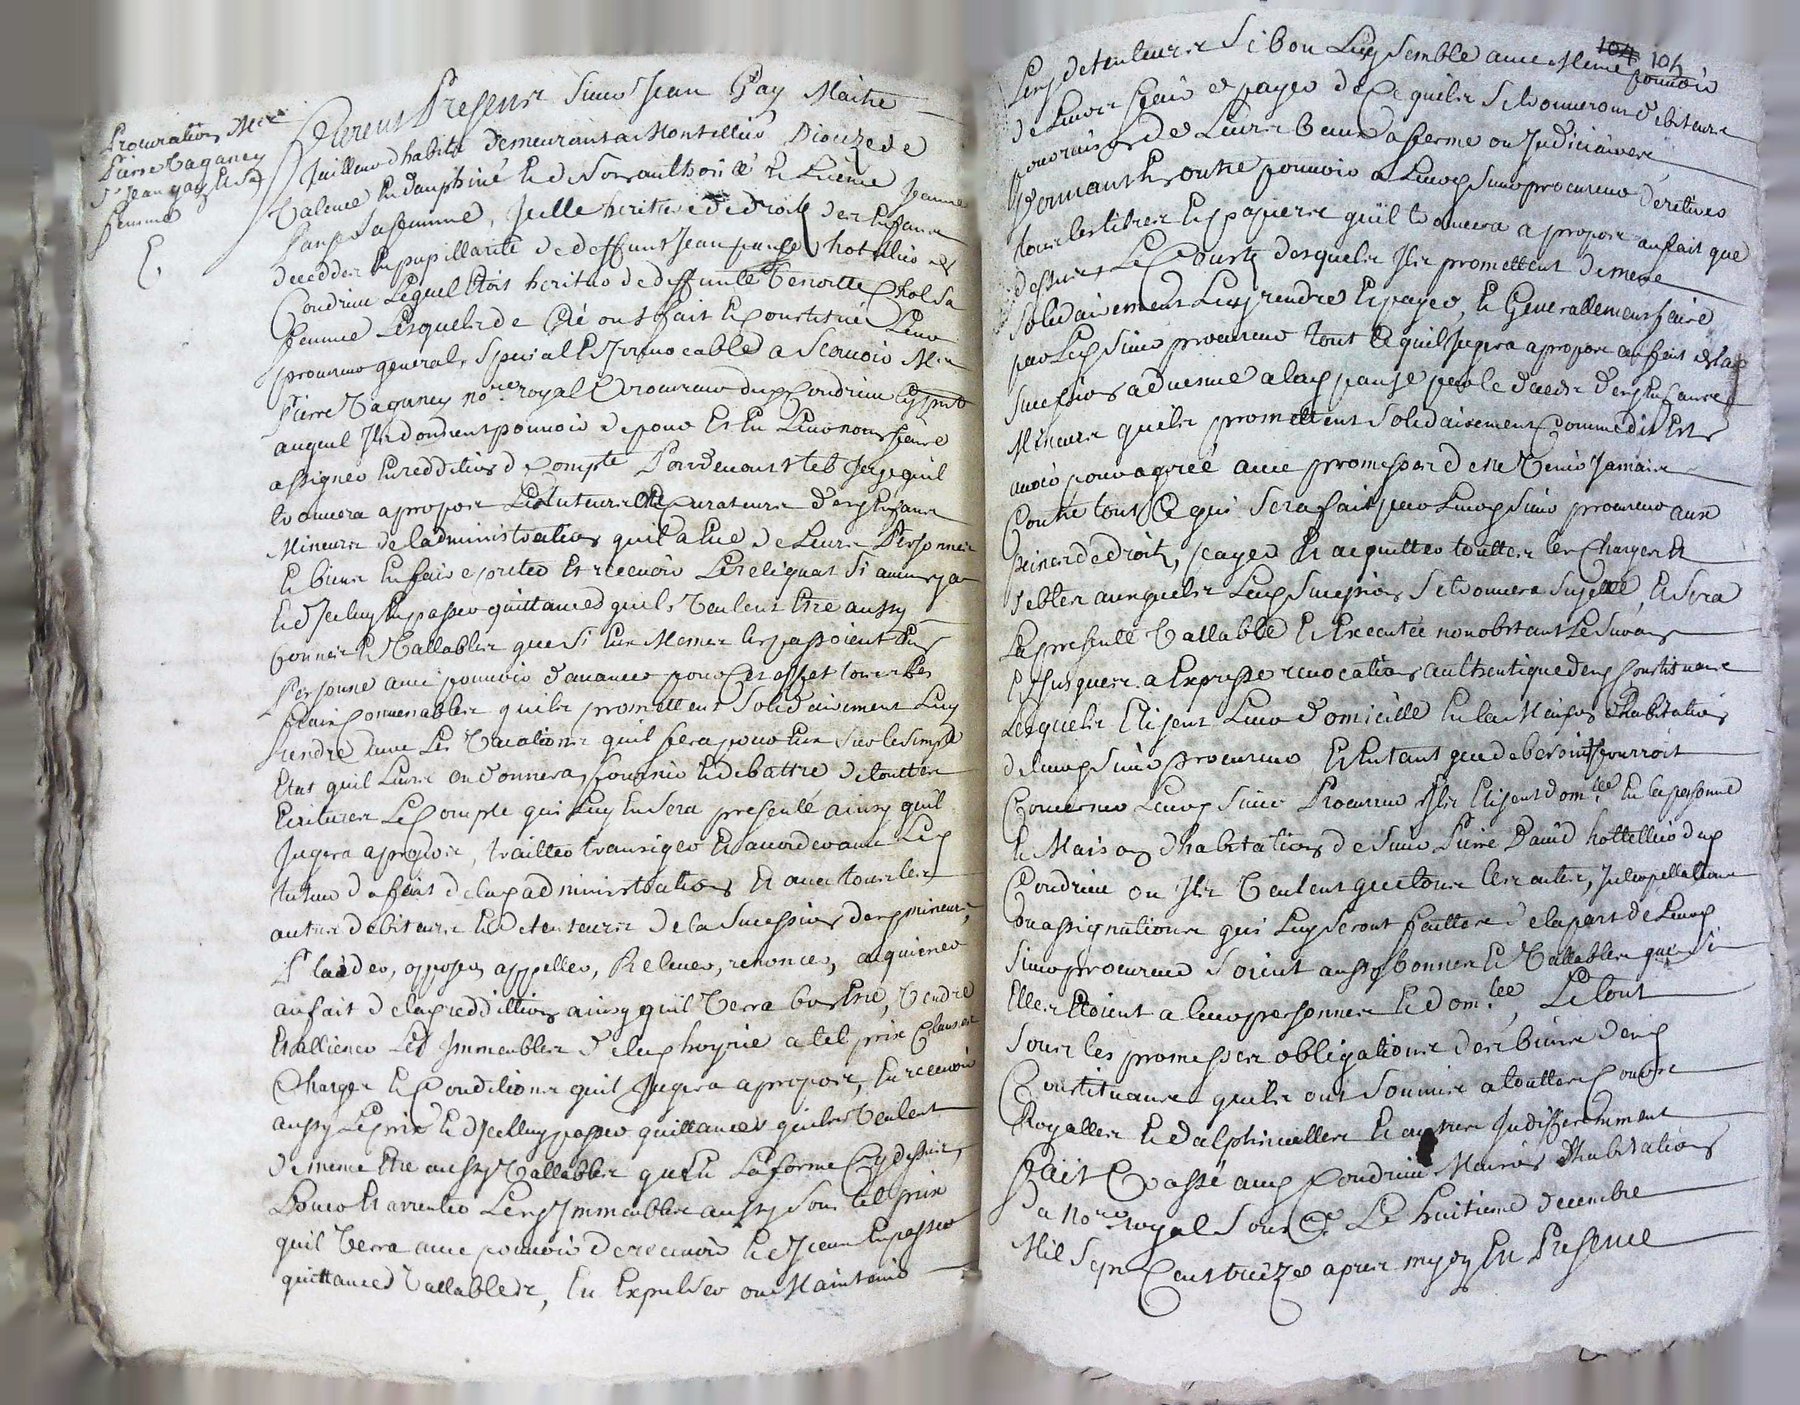 Procuration Mre
Pierre Taganey
Sr Jean Gay et sa
femme
furent Presens sieur Jean Gay Maitre
tailleur d'habits demeurant a Montellier Dioceze de
Valence en dauphiné et de son authorité et licence Jeanne
sa femme, Icelle heritiere de droit des enfans
decedder en pupillarité de deffunt Jean hottellier de
Condrieu Lequel etoit heritier de deffunte Benoitte Chol sa
femme Lesquels de gré ont fait et Constitué Leur
procureur general, special et Irrevocable a scavoir Mre
Pierre Taganey nore royal et procureur dud Condrieu cy pnt
auquel Ils donnent pouvoir de pour et en Leur nom faire
assigner en reddition de compte Pardevant tel Juge quil
trouvera a propos Les tuteurs et Curateurs desd enfans
Mineurs de ladministration quil a eue de Leurs Personnes
et biens en faire preter et recevoir Le reliquat si aucun y a
et d'Iceluy en passer quittances quils Veulent etre aussy
bonnes et Vallables que si eux Memes les passoient en
Personne avec pouvoir d'avancer pour cet effet tous les
frais Convenables quils promettent solidairement Luy
rendre avec Les Vacations quil fera pour eux sur le simple
Etat quil Livre ou donnera, fournir et debattre de touttes
Ecritures Le Compte qui Luy en sera presenté ainsy quil
Jugera apropos, traitter transiger et accorder avec Led
tuteur du fait de lad administration et avec tous les
autres debiteurs et detenteurs de la succession desd mineurs,
Plaider, opposer, appeller, Relever, renoncer, acquiescer
au fait de lad reddition ainsy quil Verra bon etre, Vendre
et alliener Les Immeubles de lad hoyrie a tel prix Clauses
Charges et Conditions quil Jugera a propos, en recevoir
aussy Le prix et d'Icelluy passer quittances quils Veulent
de meme etre aussy Vallables quen La forme cy dessus,
Louer et arrenter Lesd Immeubles aussy sous tel prix
quil Verra avec pouvoir de recevoir et d'Iceux en passer
quittances Vallables, En Expulser ou Maintenir
104 104
Lesd detenteurs si bon Luy semble avec Meme pouvoir
de Livrer et payer de ce quils se trouveront debiteurs
pour raison de Leurs beaux a ferme ou Judiciaires
Donnant en outre pouvoir a Leurd sieur procureur de retirer
tous les titres et papiers quil trouvera a propos au fait que
dessus, Le Coust desquels Ils promettent de meme
solidairement Luy rendre et payer, et Generallement faire
par Led sieur procureur tout ce quil Jugera apropos au fait de la
succession advenue a lad par le deces desd enfans
Mineurs quils promettent solidairement Comme dit est
avoir pour agreé avec promesse de ne Venir Jamais
Contre tout ce qui sera fait par Leurd sieur procureur aux
peines de droit, payer et acquitter touttes les Charges et
debtes auxquels Lad succession se trouvera sujette, et sera
La presente Vallable et executée nonobstant Le
et Jusques a expresse revocation authentique desd constituans
Lesquels Elisent Leur domicille en la Maison d'habitation
de leurd sieur procureur et en tant que de besoin pourroit
Concerner Leurd sieur Procureur Ils elisent domlle en la personne
et Maison d'habitation de sieur Pierre David hottellier dud
Condrieu ou Ils Veulent que tous les actes, Interpellations
ou assignations qui Luy seront faittes de la part de Leurd
sieur procureur soient aussy bonnes et Vallables que si
Elles etoient a leur personnes et domlle, Le tout
sous les promesses obligations des biens desd
Constituans quils ont soumis a touttes Cours
Royalles et dalphinalles et autres Indifferemment
fait et passé aud Condrieu Maison d'habitation
du nore royal soussne Le huitieme decembre
Mil Sept Cent treize apres midy En Presence